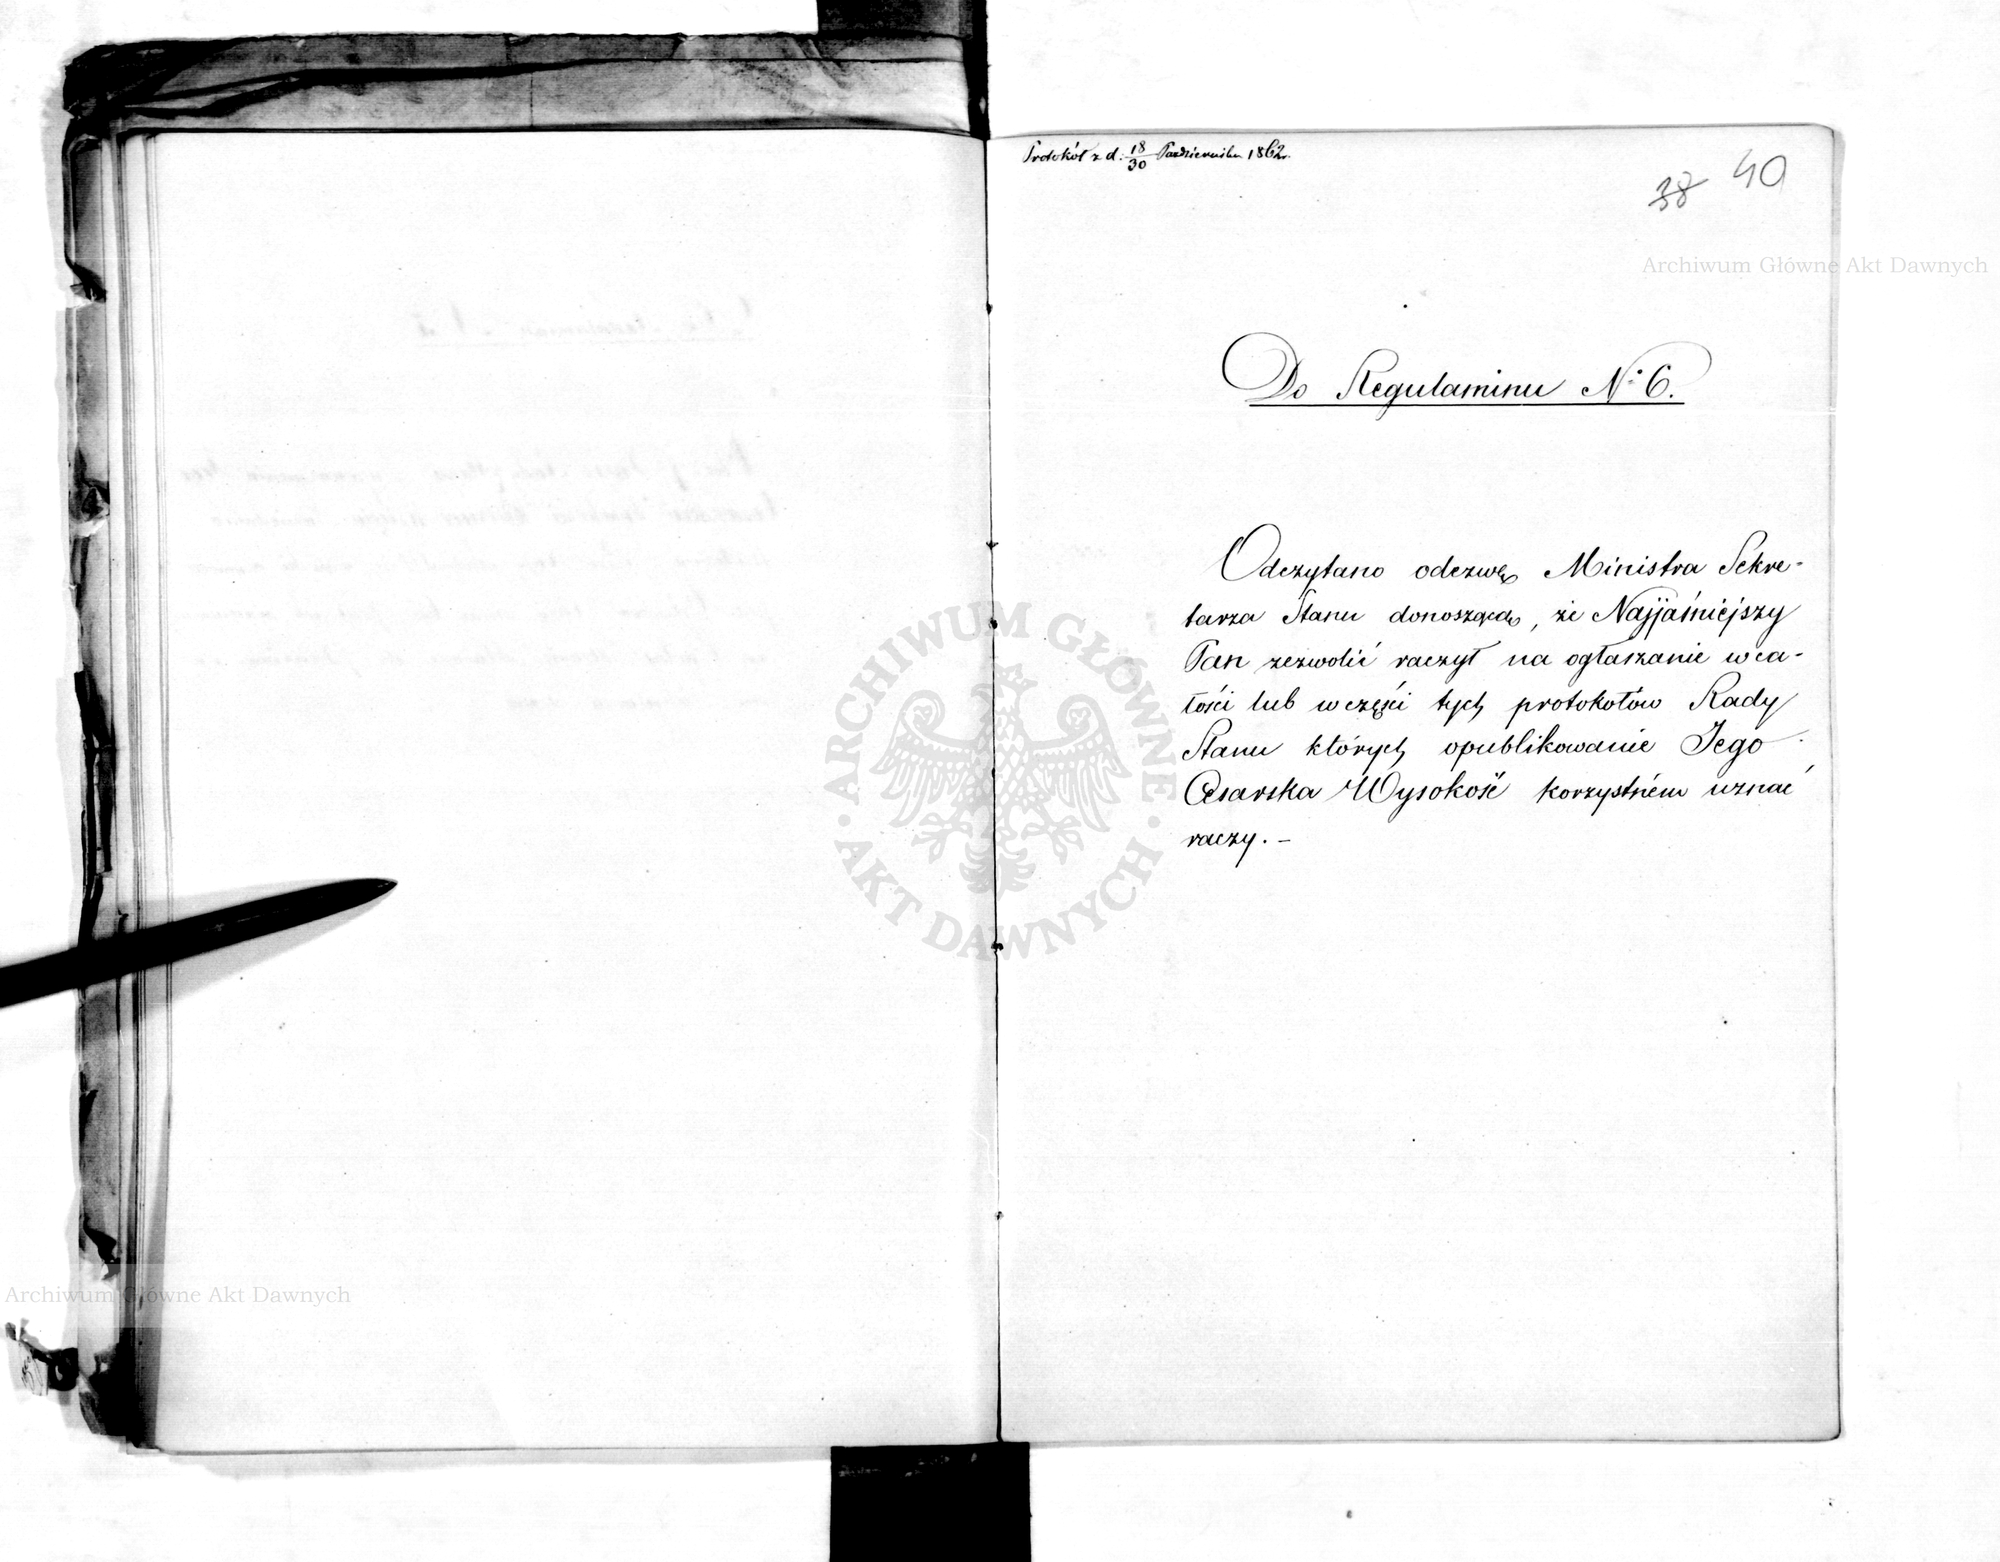 Protokół z d. 18/30 Października 1862r.
38 40
Do Regulaminu N. 6.
Odczytano odezwę Ministra Sekre-
tarza Stanu donoszącą, że Najjaśniejszy
Pan zezwolić raczył na ogłaszanie w ca-
łości lub w części tych protokołów Rady
Stanu których opublikowanie Jego
Cesarska Wysokość korzystném uznać
raczy. –
Archiwum Główne Akt Dawnych
ARCHIWUM GŁÓWNE · AKT DAWNYCH ·
Archiwum Główne Akt Dawnych